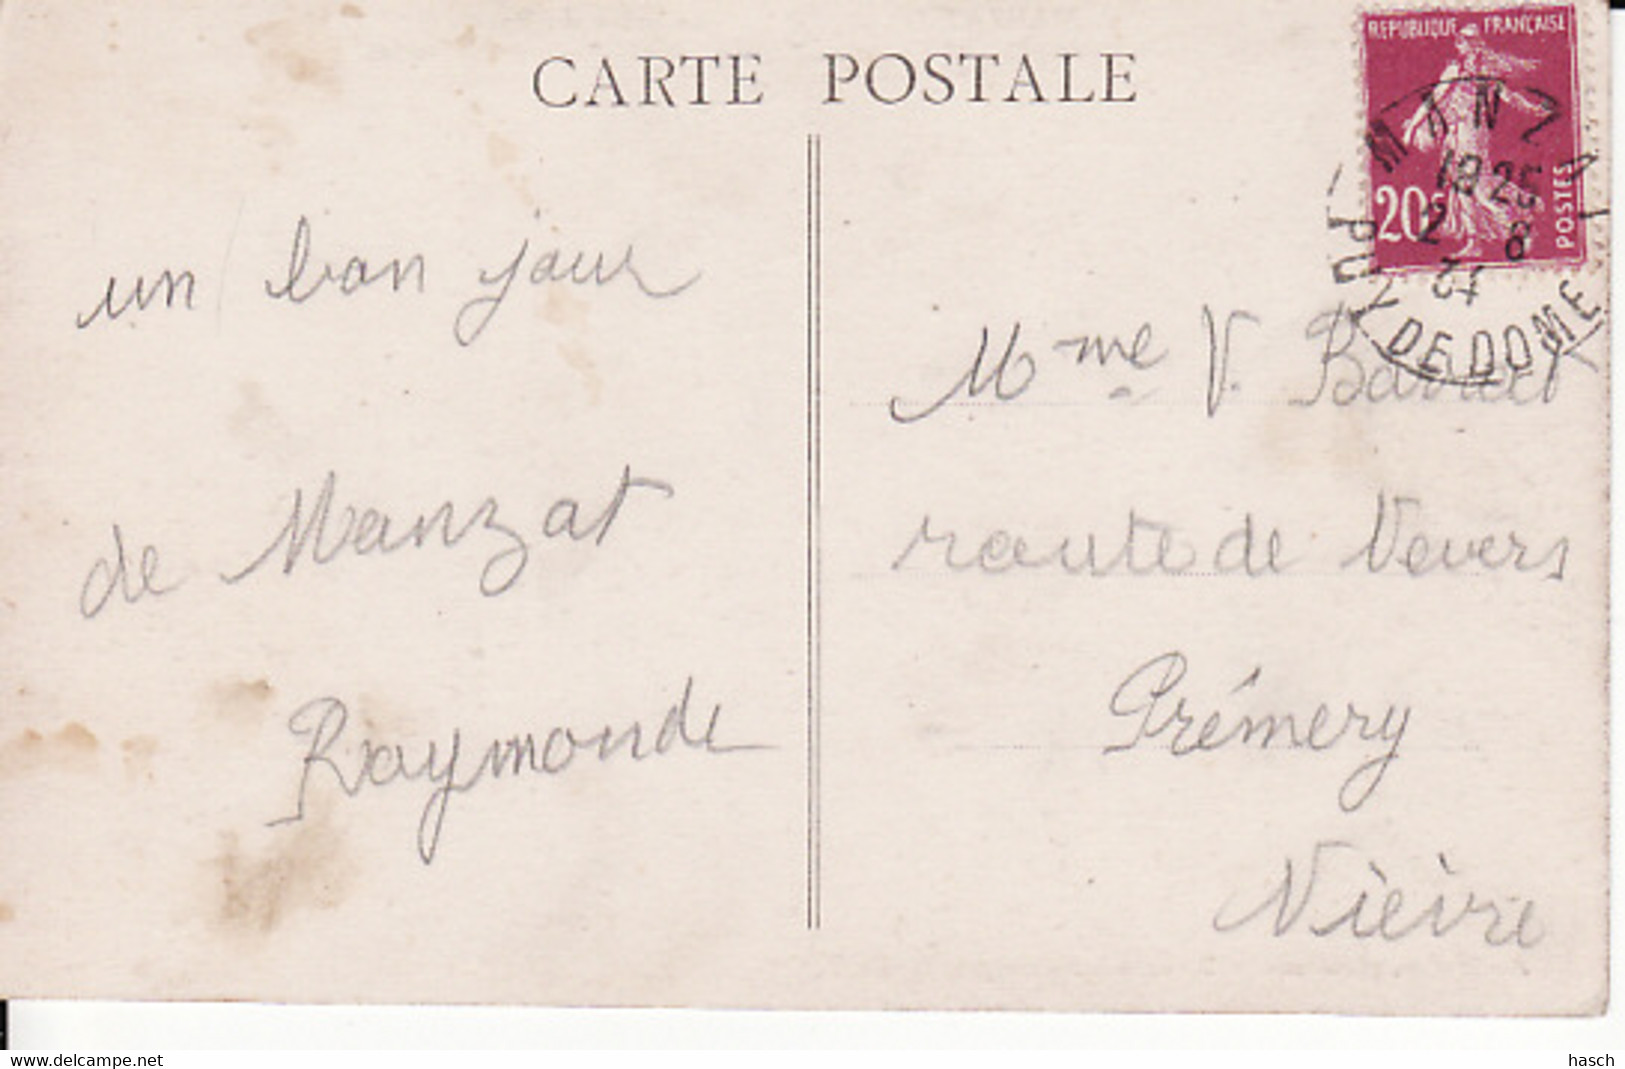 CARTE POSTALE
REPUBLIQUE FRANÇAISE
20c
POSTES
MANZAT
18 25
2 8
PUY DE DOME
un bon jour
de Manzat
Raymonde
Mme V.
route de Nevers
Prémery
Nièvre
delcampe.net
hasch